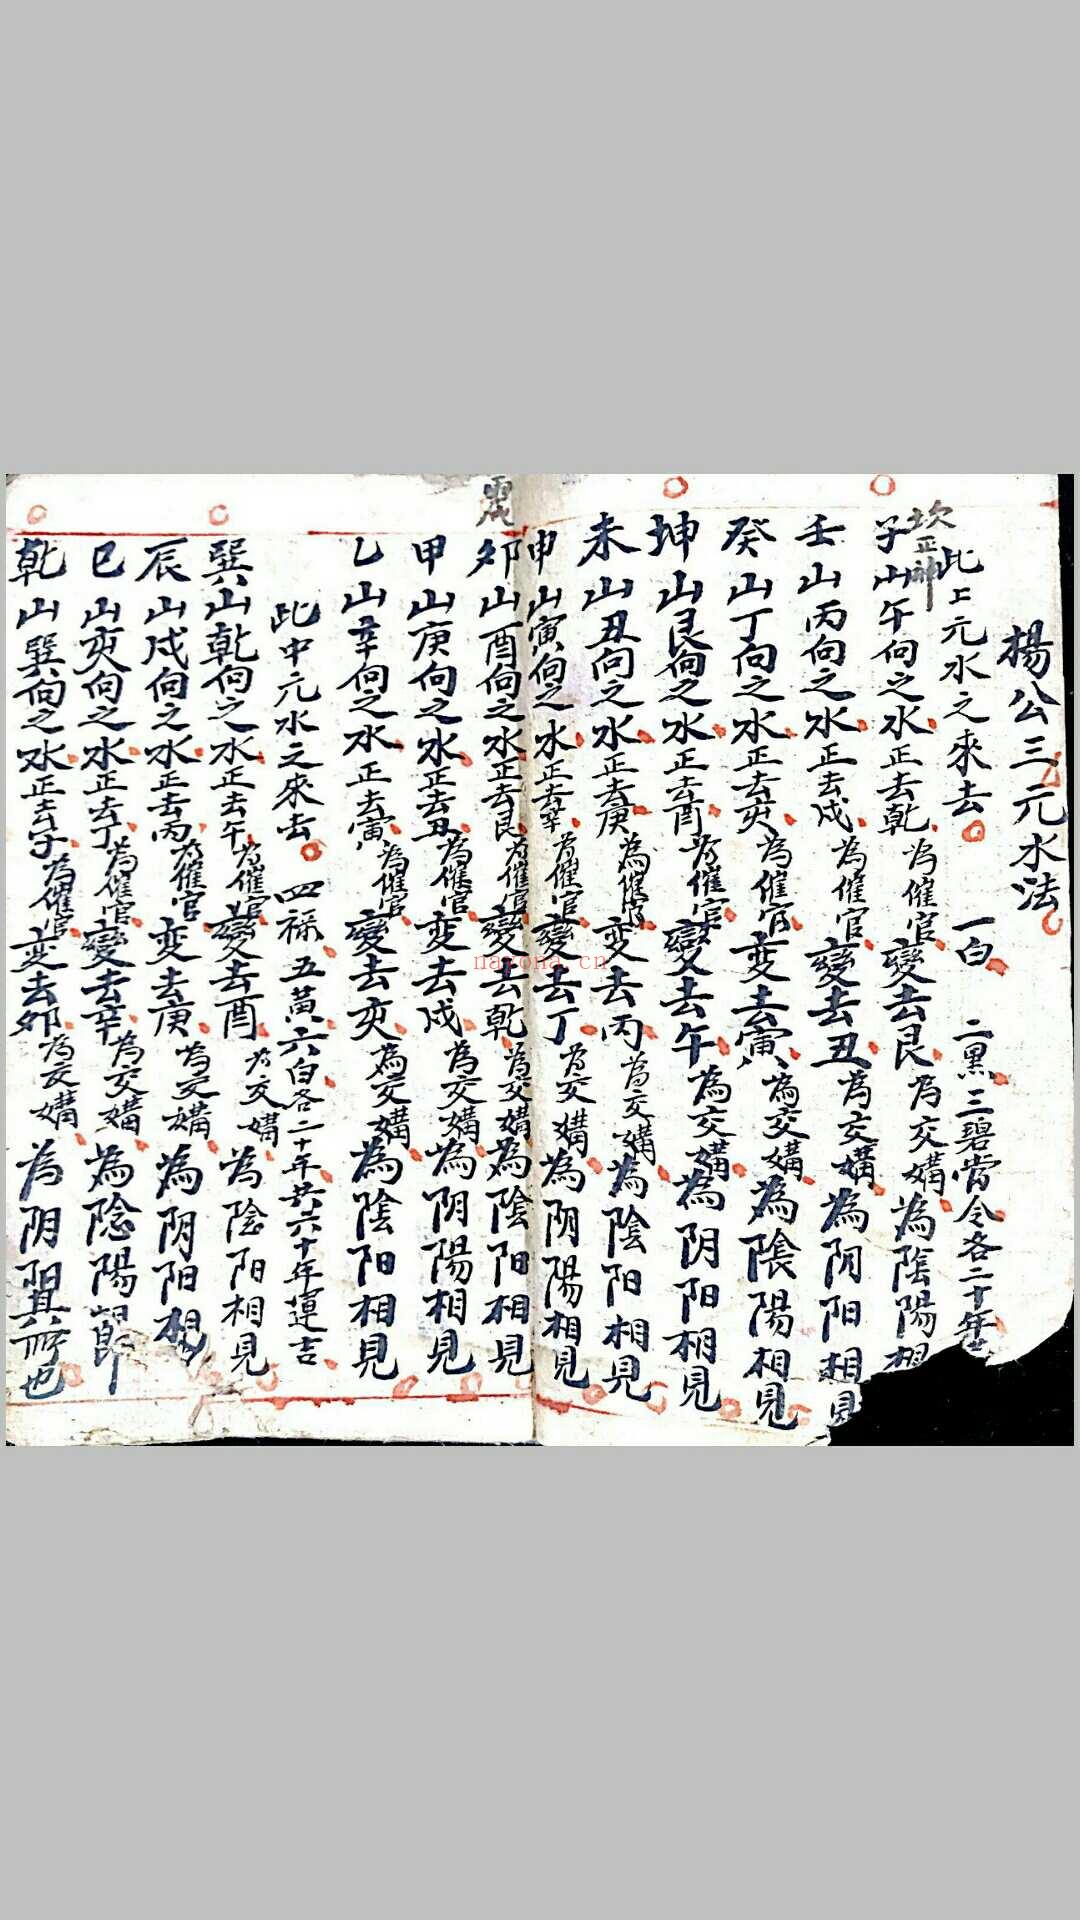 楊公三元水法
此上元水之來去 一白 二黑 三碧 當令各二十年
坎正神
子山午向之水正去乾為催官變去艮為交媾為陰陽相
壬山丙向之水正去戍為催官變去丑為交媾為阴阳相見
癸山丁向之水正去亥為催官变去寅為交媾為陰陽相見
坤山艮向之水正去酉為催官變去午為交媾為阴阳相見
未山丑向之水正去庚為催官变去丙為交媾為陰阳相見
申山寅向之水正去辛為催官變去丁為交媾為阴陽相見
震
卯山酉向之水正去艮為催官變去乾為交媾為陰阳相見
甲山庚向之水正去丑為催官变去戍為交媾為阴陽相見
乙山辛向之水正去寅為催官變去亥為交媾為陰阳相見
此中元水之來去 四祿 五黃 六白各二十年共六十年運吉
巽山乾向之水正去午為催官變去酉為交媾為陰阳相見
辰山戍向之水正去丙為催官变去庚為交媾為阴阳相
巳山亥向之水正去丁為催官變去辛為交媾為陰陽
乾山巽向之水正去子為催官变去卯為交媾為阴阳其所也
nayona.cn